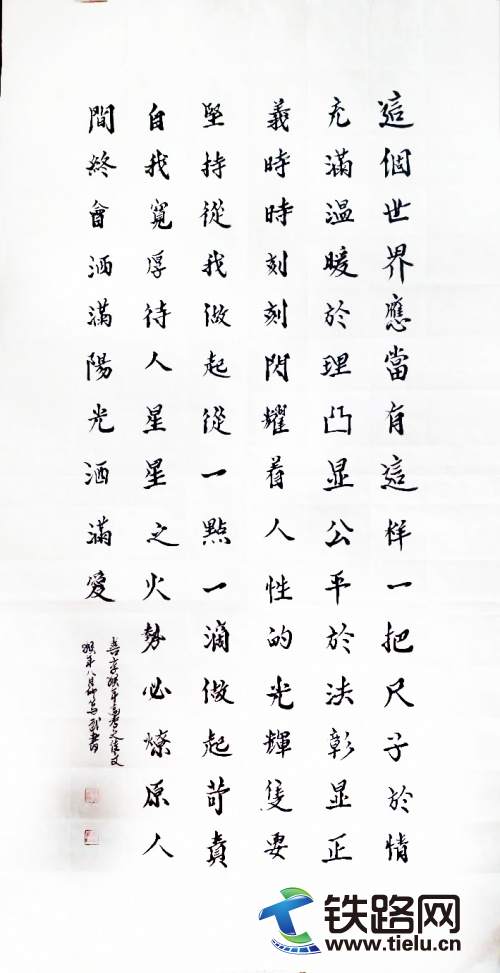 這個世界應當有這样一把尺子於情
充滿温暖於理凸显公平於法彰显正
義時時刻刻閃耀着人性的光輝隻要
堅持從我做起從一點一滴做起苛責
自我寬厚待人星星之火勢必燎原人
間終會洒滿陽光洒滿愛
年高考之佳文
年八月書
铁路网
www.tielu.cn